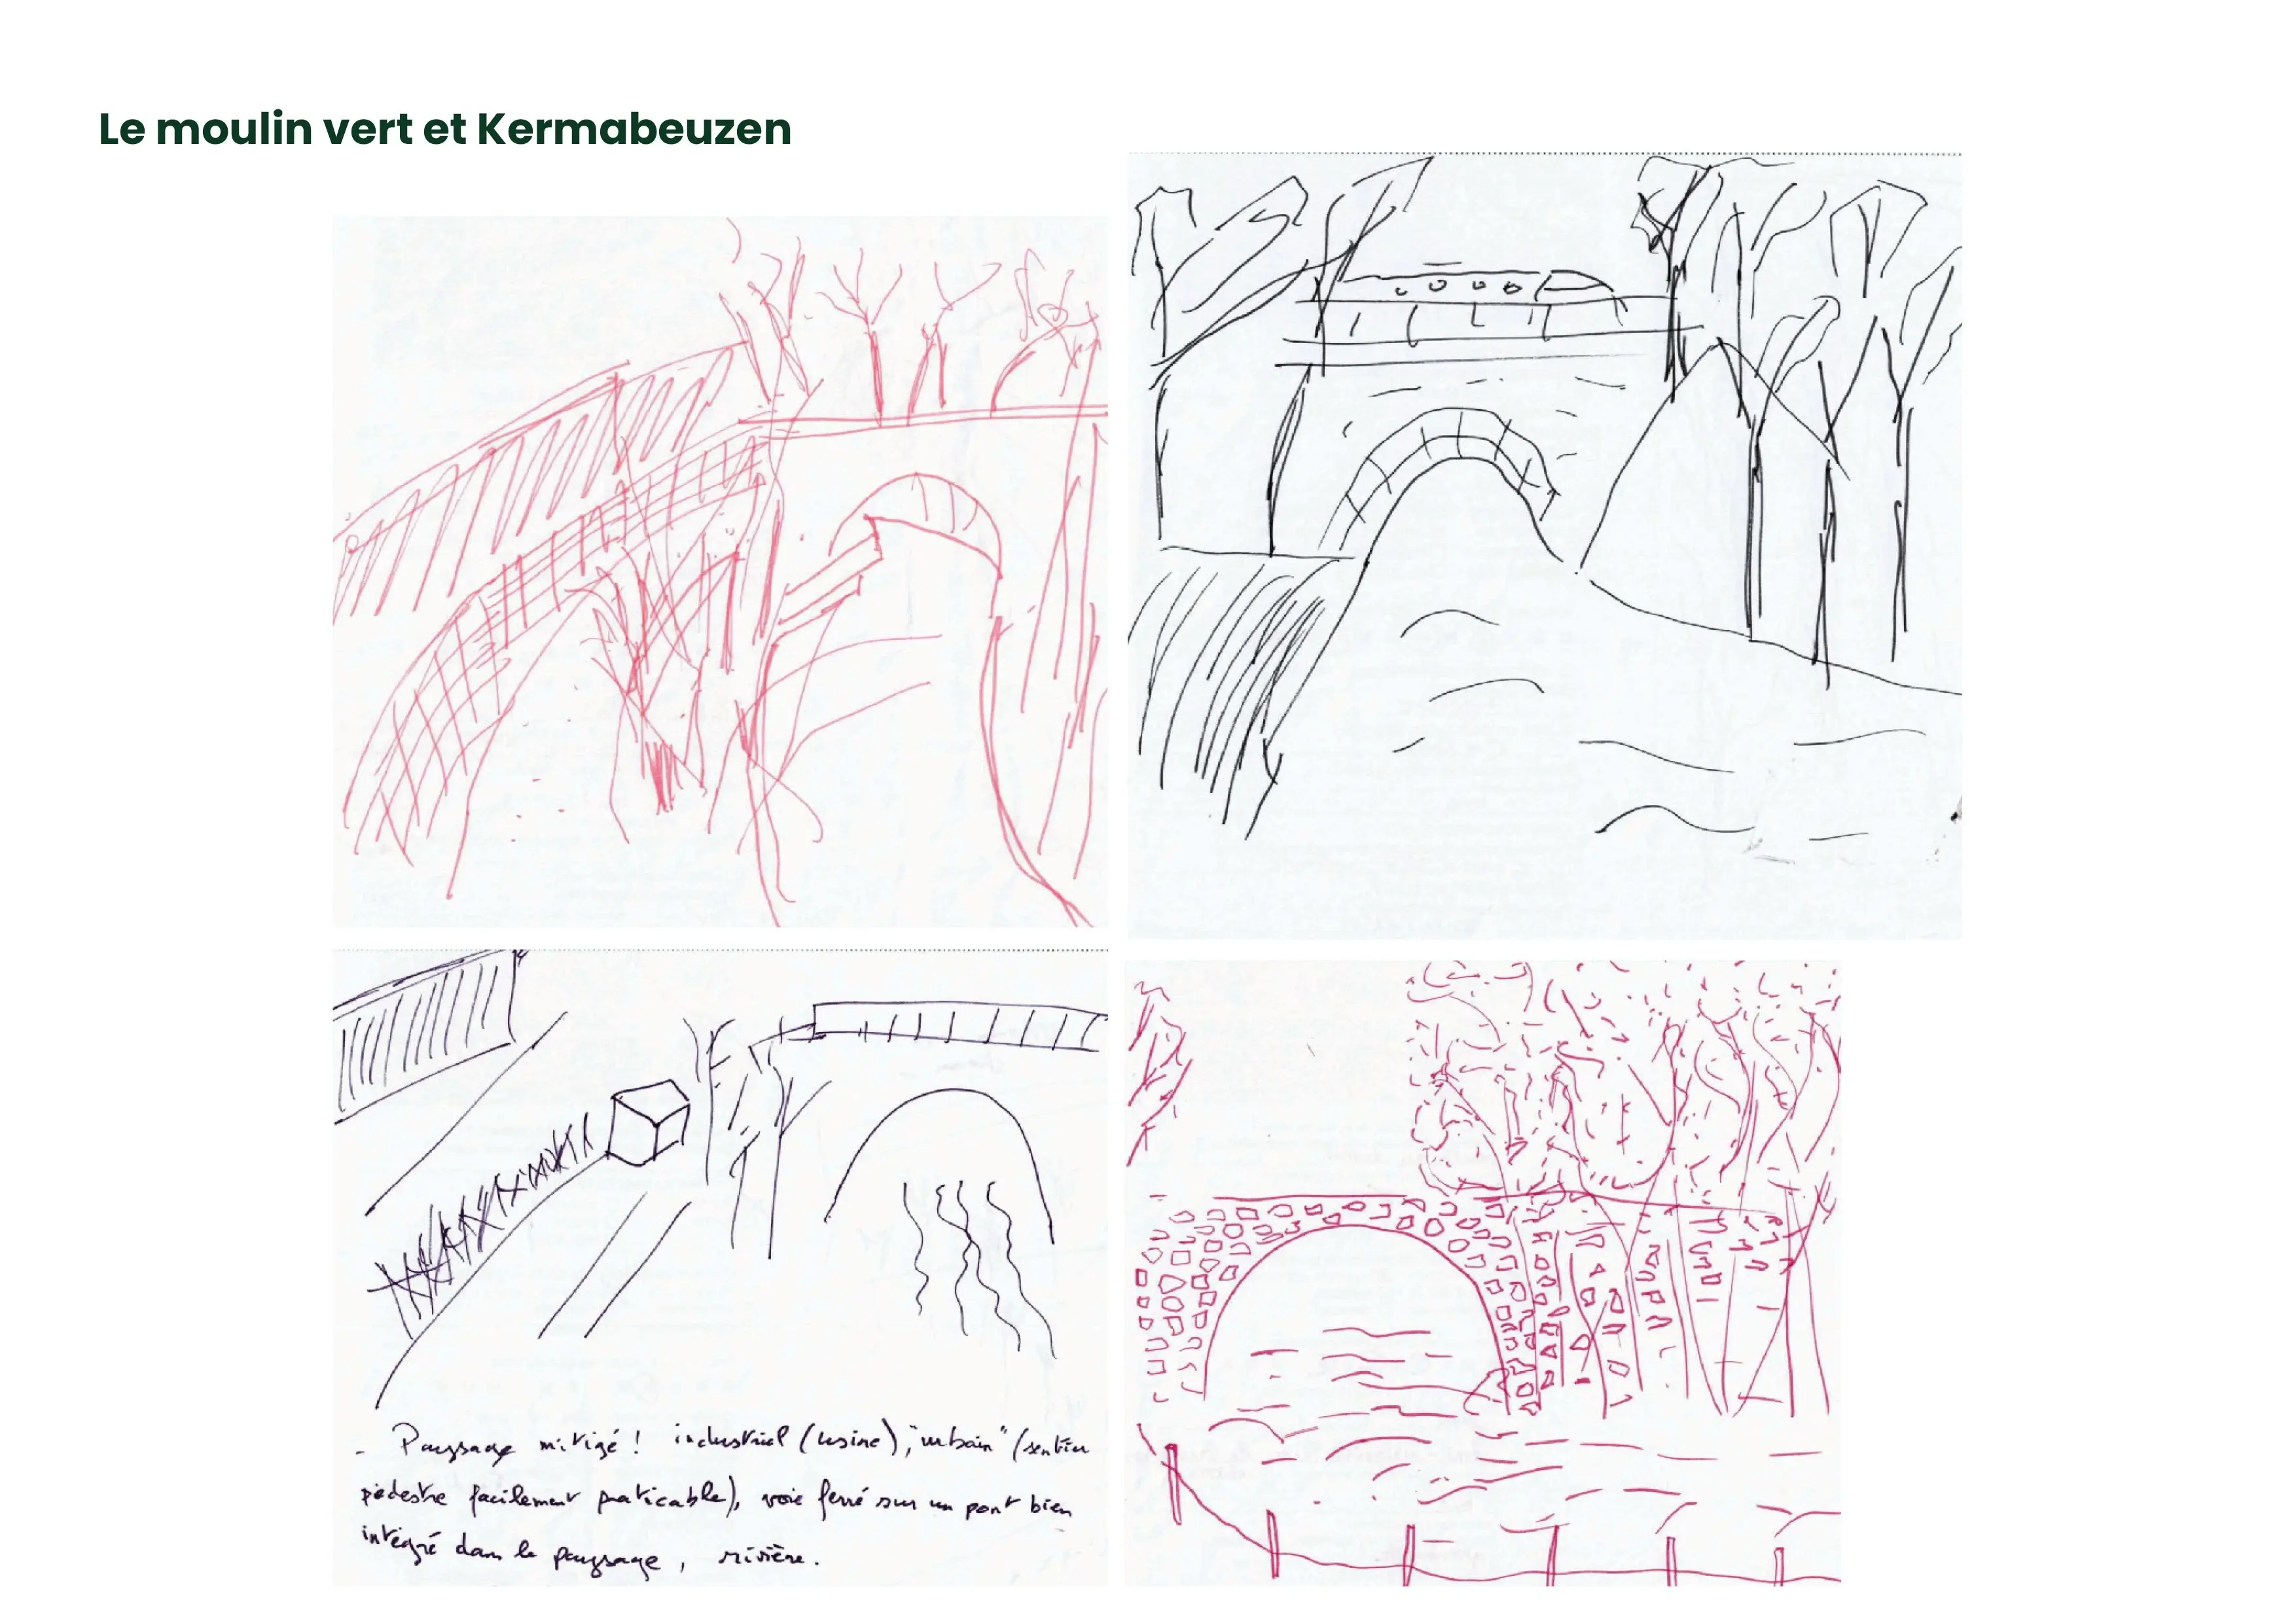 Le moulin vert et Kermabeuzen
- Paysage mitigé ! industriel (usine), "urbain" (sentier
pédestre facilement praticable), voie ferré sur un pont bien
intégré dans le paysage, rivière.